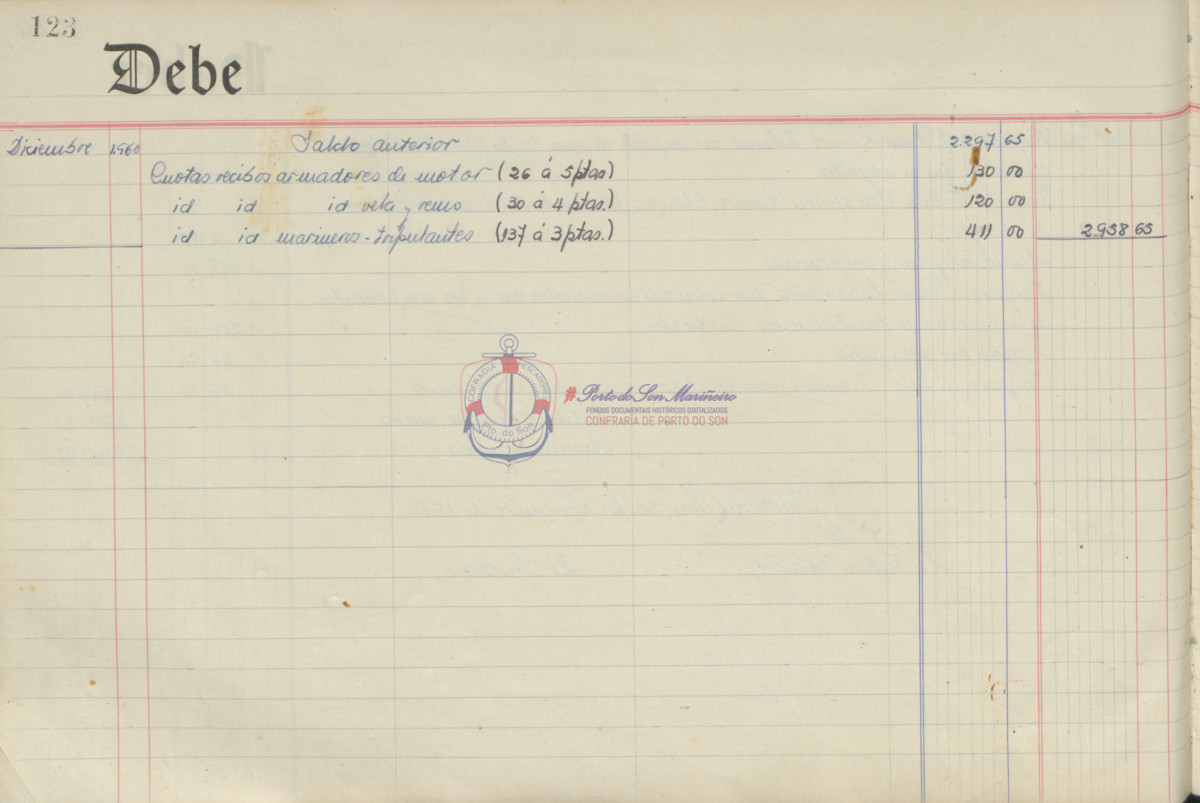 123
Debe
Diciembre 1.960 Saldo anterior 2.297 65
Cuotas recibos armadores de motor (26 á 5 ptas) 130 00
id id id vela y remo (30 á 4 ptas.) 120 00
id id marineros-tripulantes (137 á 3 ptas.) 411 00 2.958 65
COFRADIA PESCADORES
Pto. do Son
#Porto do Son Mariñeiro
FONDOS DOCUMENTAIS HISTÓRICOS DIXITALIZADOS
CONFRARÍA DE PORTO DO SON